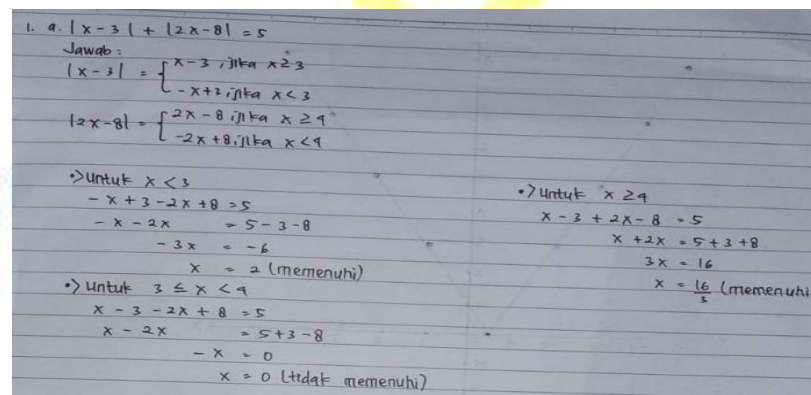 1. a. |x-3| + |2x-8| = 5
Jawab :
|x-3| = { x-3 , jika x ≥ 3
-x+3 , jika x < 3
|2x-8| = { 2x-8 , jika x ≥ 4
-2x+8 , jika x < 4
•> Untuk x < 3
-x+3-2x+8 = 5
-x-2x = 5-3-8
-3x = -6
x = 2 (memenuhi)
•> Untuk 3 ≤ x < 4
x-3-2x+8 = 5
x-2x = 5+3-8
-x = 0
x = 0 (tidak memenuhi)
•> Untuk x ≥ 4
x-3+2x-8 = 5
x+2x = 5+3+8
3x = 16
x = 16/3 (memenuhi